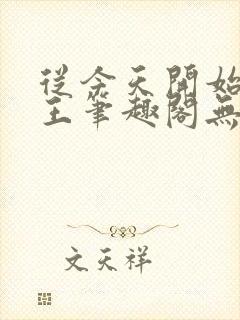 從今天開始
王筆趣閣無
文天祥